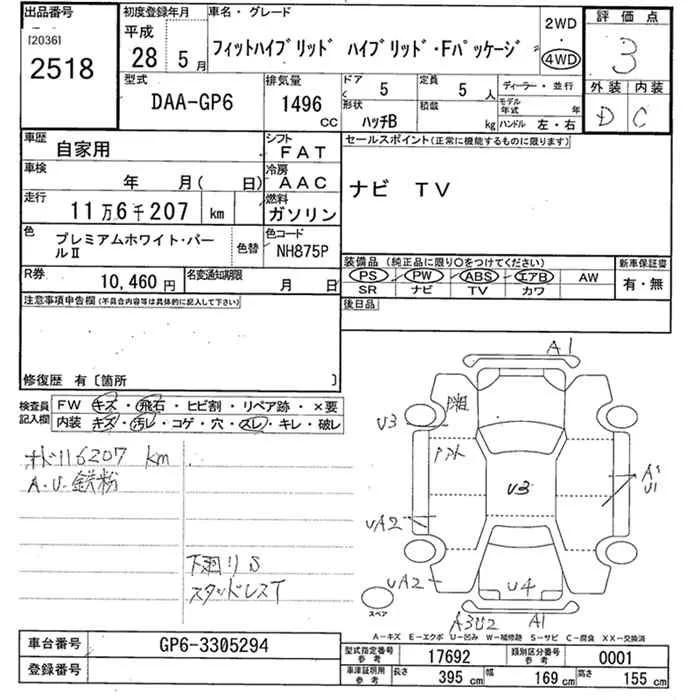 出品番号
[2036]
2518
初度登録年月
平成
28年 5月
車名・グレード
フィットハイブリッド ハイブリッド・Fパッケージ
2WD
・
4WD
評価点
3
外装 内装
D C
型式
DAA-GP6
排気量
1496 CC
ドア
5
形状
ハッチB
定員
5 人
積載
kg
ディーラー・並行
モデル年式 年
ハンドル 左・右
車歴
自家用
シフト
FAT
車検
年 月( 日)
冷房
AAC
走行
11万6千207 km
燃料
ガソリン
色
プレミアムホワイト・パールⅡ
色替
色コード
NH875P
R券
10,460円
名変通知期限
月 日
セールスポイント(正常に機能するものに限ります)
ナビ TV
装備品(純正品に限り○をつけてください)
PS PW ABS エアB AW
SR ナビ TV カワ
新車保証書
有・無
後日品
注意事項申告欄(不具合内容等は具体的に記入して下さい)
修復歴 有〔箇所 〕
検査員記入欄
FW キズ・飛石・ヒビ割・リペア跡・×要
内装 キズ・汚レ・コゲ・穴・スレ・キレ・破レ
オド116207 km
A.U.鉄粉
下廻りS
スタッドレスT
A1
U3
U3
A1
U1
UA2
UA2
U4
A3U2 A1
スペア
A-キズ E-エクボ U-凹み W-補修跡 S-サビ C-腐食 XX-交換済
車台番号
GP6-3305294
登録番号
型式指定番号 参考
17692
類別区分番号 参考
0001
車庫証明用 参考
長さ 395 cm 幅 169 cm 高さ 155 cm